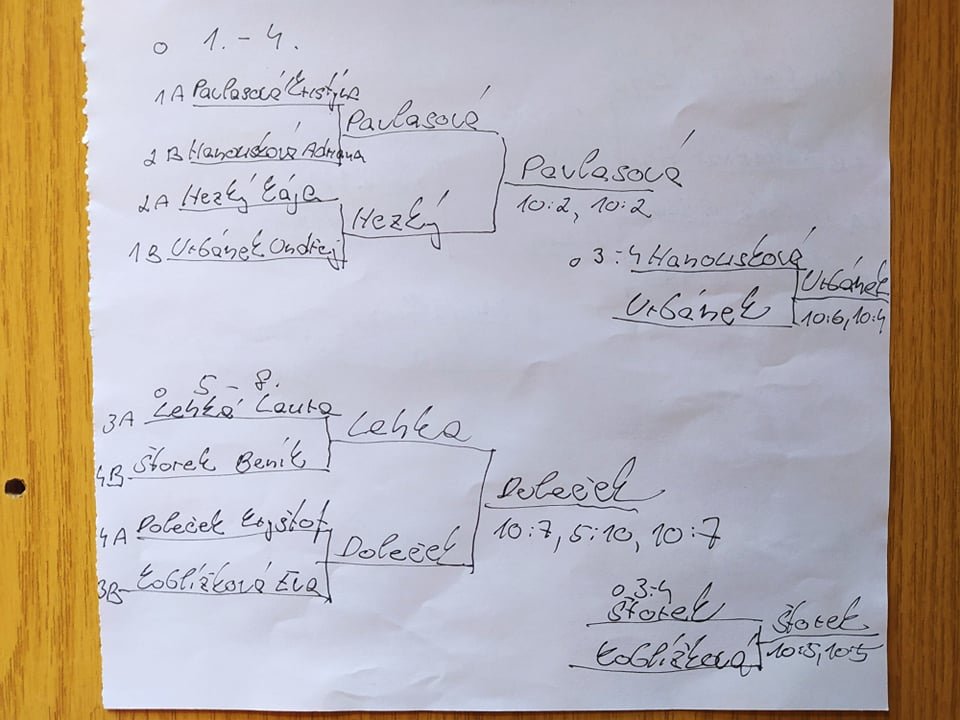 o 1. - 4.
1A Pavlasová Kristýna
Pavlasová
2B Hanousková Adriana
Pavlasová
10:2, 10:2
2A Hezký Kája
Hezký
1B Urbánek Ondřej
o 3:4 Hanousková
Urbánek
Urbánek
10:6, 10:4
o 5 - 8.
3A Lehká Laura
Lehka
4B Štorek Beník
Doleček
10:7, 5:10, 10:7
4A Doleček Kryštof
Doleček
3B Koblížková Eva
o 3:4
Štorek
Štorek
10:5, 10:5
Koblížková